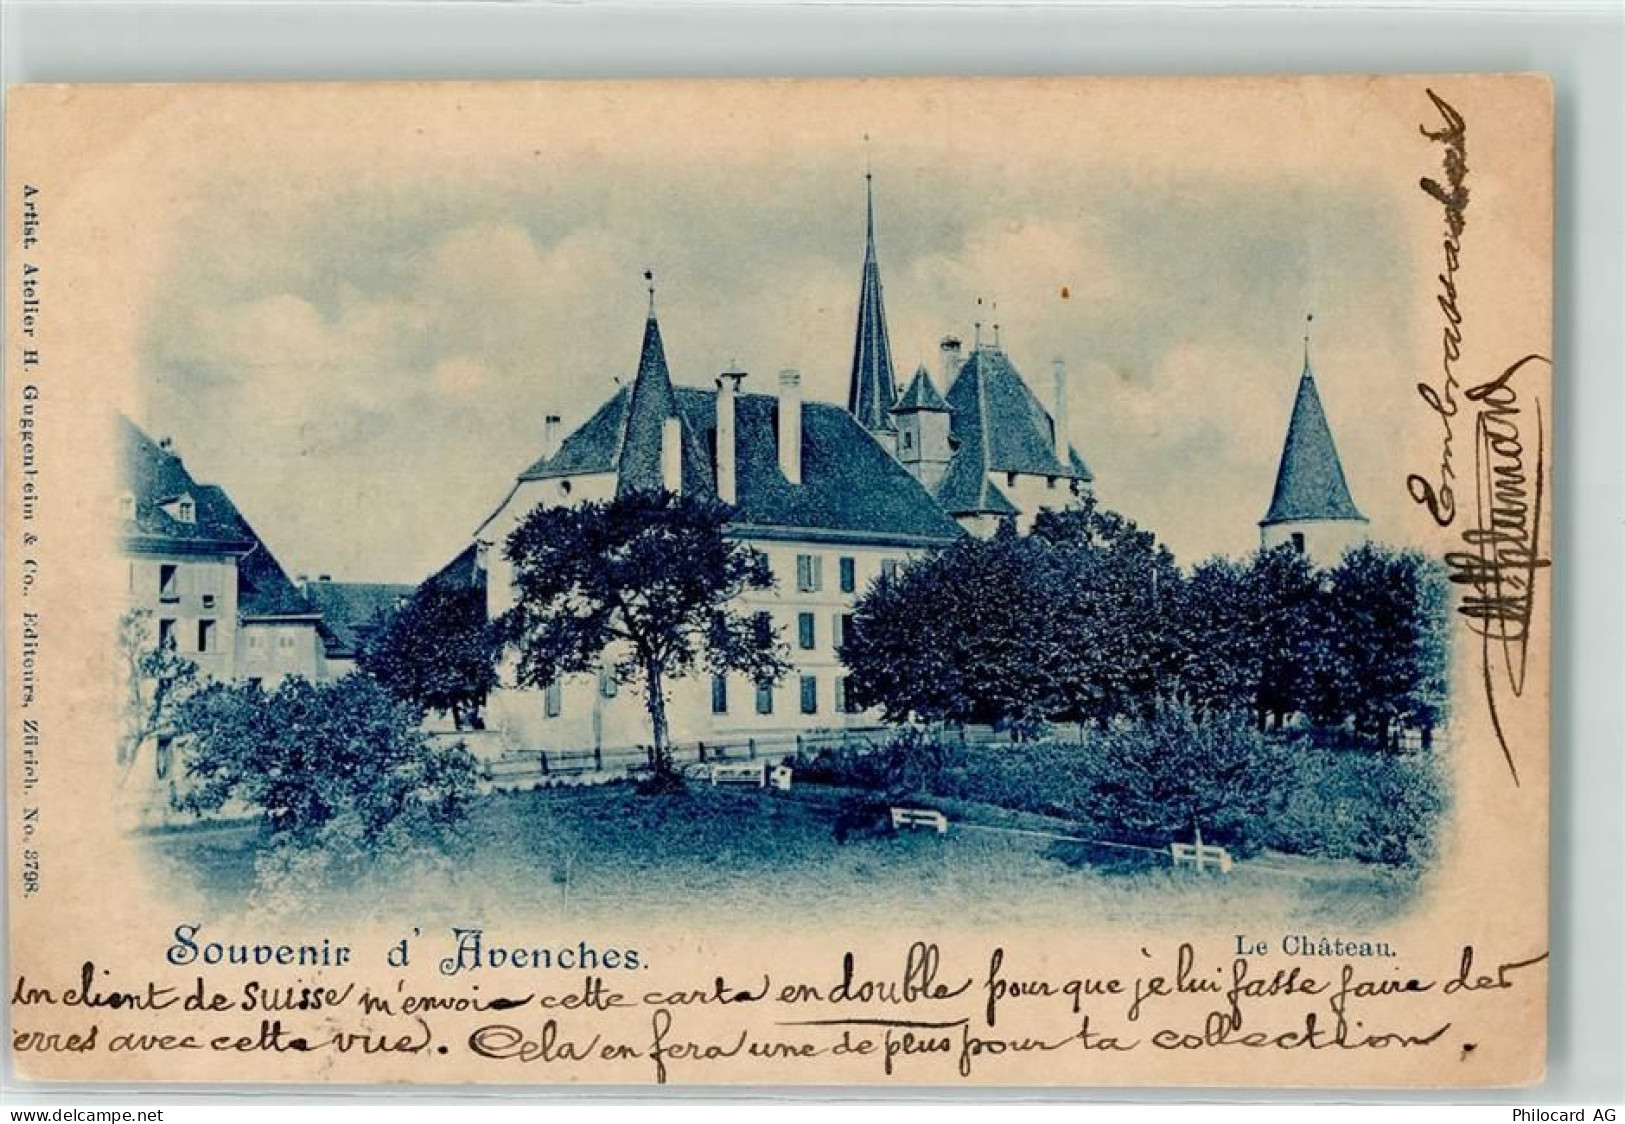 Artist. Atelier H. Guggenheim & Co., Editeurs, Zürich. No. 3798.
Souvenir d' Avenches.
Le Château.
un client de suisse m'envoie cette carte en double pour que je lui fasse faire des
erres avec cette vue. Cela en fera une de plus pour ta collection.
Embrassades
www.delcampe.net
Philocard AG